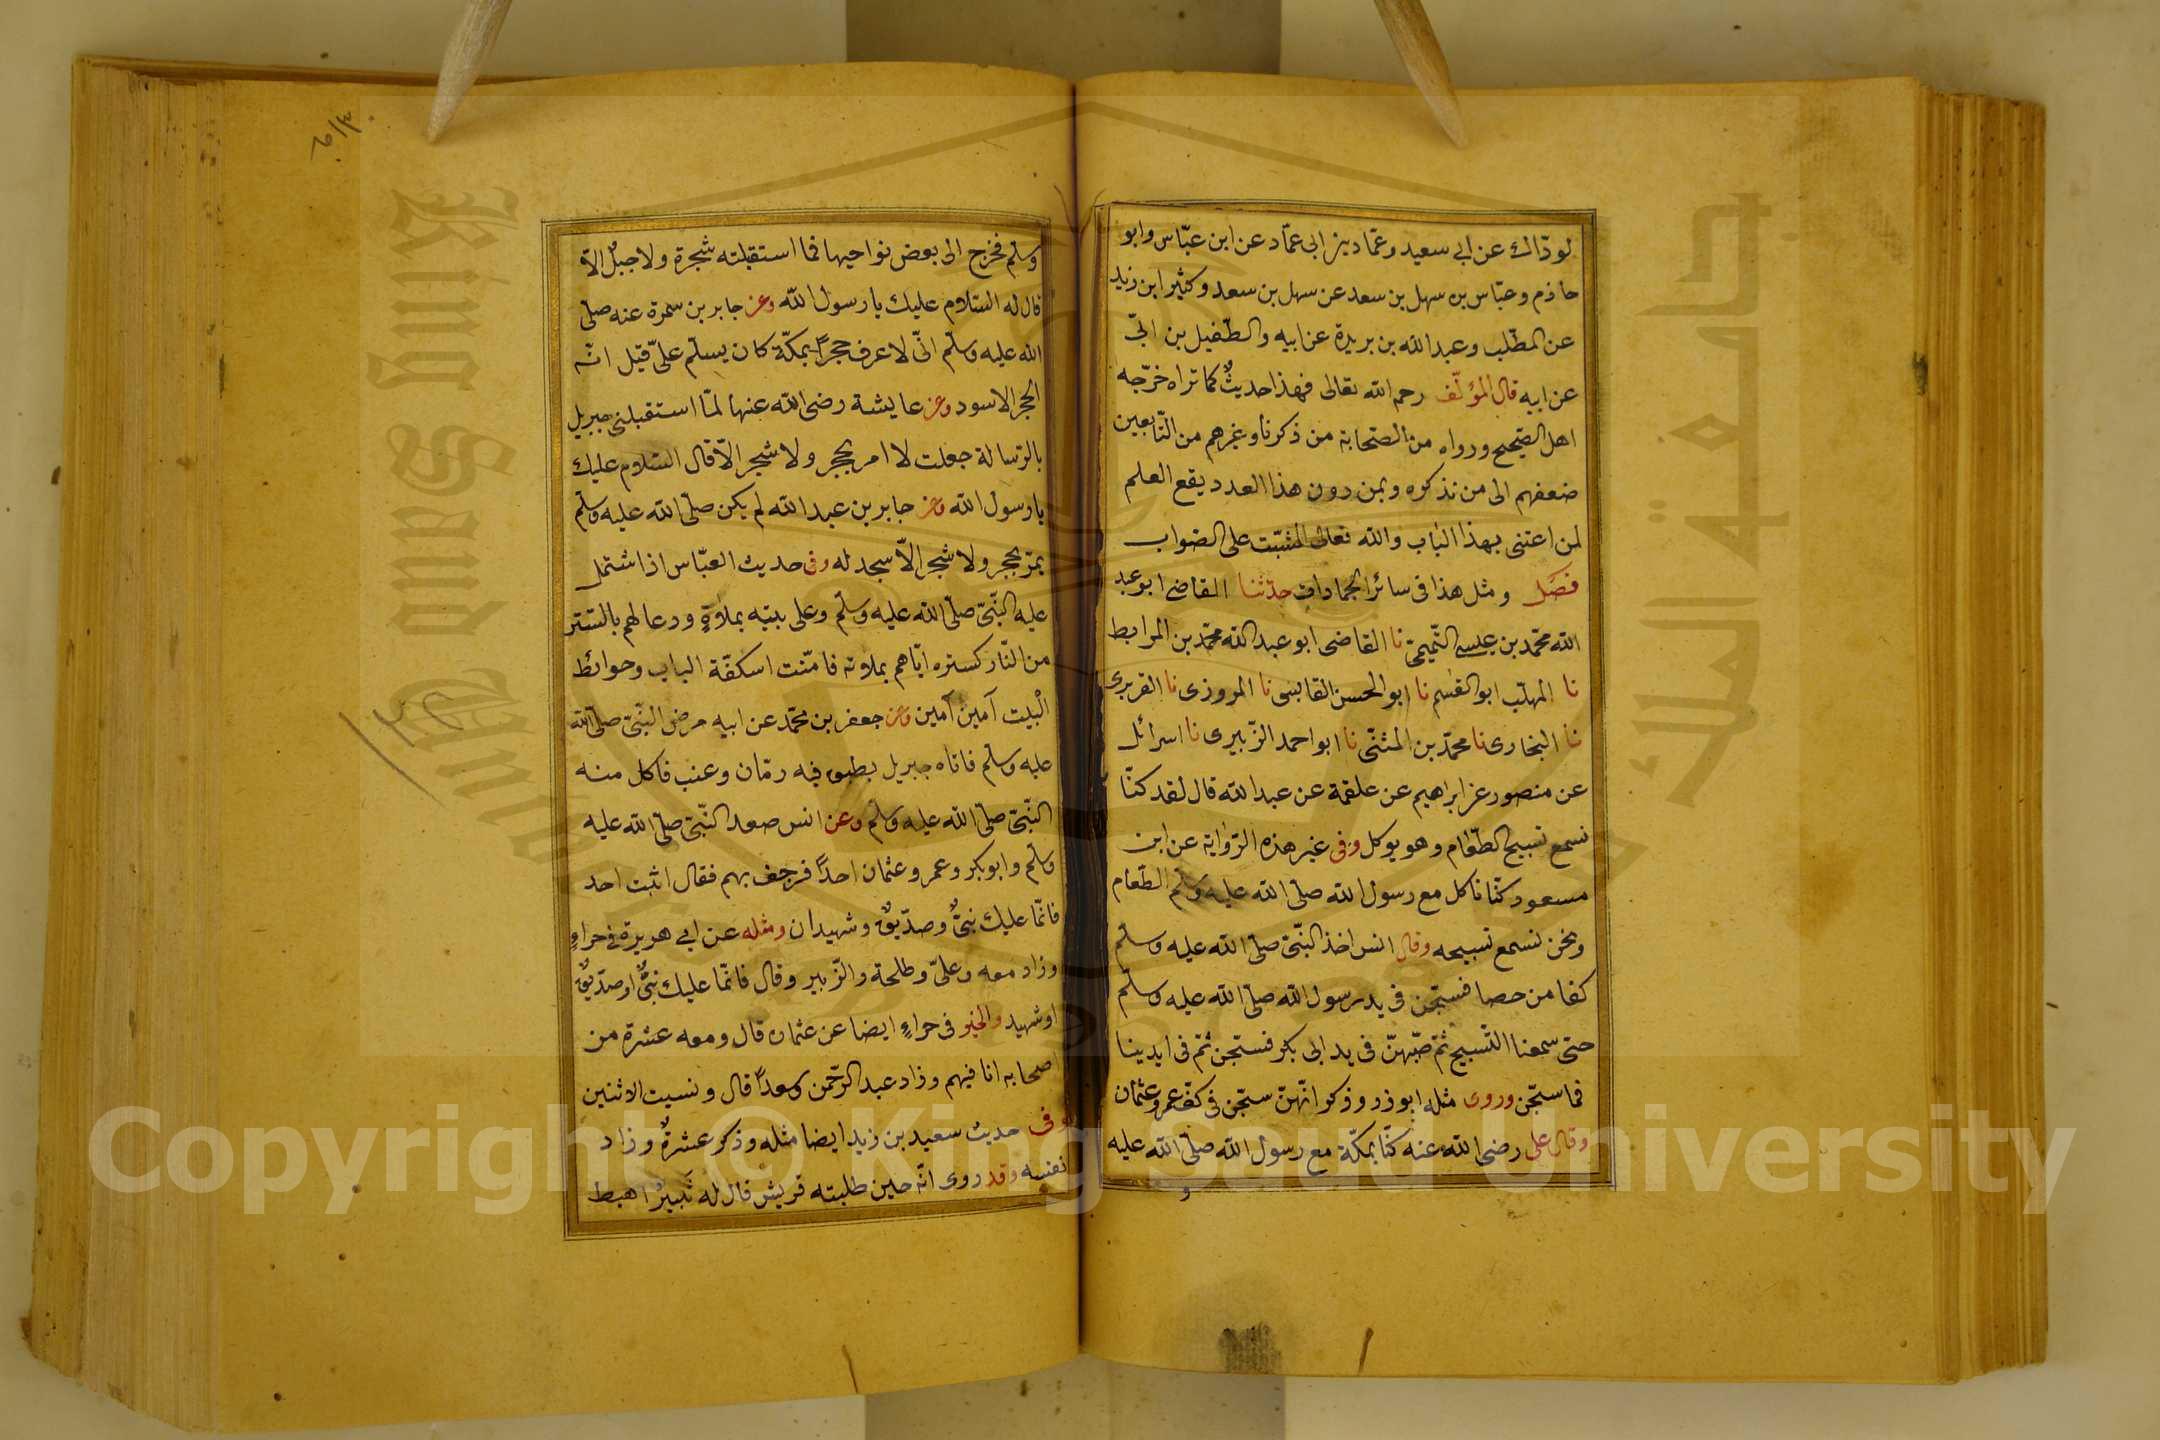 لوذاك عن ابي سعيد وعمّا دينر ابى عمّاد عن ابن عبّاس وابو
حاذم وعبّاس بن سهل بن سعد عن سهل بن سعد وكثير ابن زيد
عن المطّلب وعبد الله بن بريدة عن ابيه والطّفيل بن ابىّ
عن ابيه قال المؤلّف رحم الله تعالى فهذا حديثٌ كما تراه خرّجه
اهل الصّحيح ورواه من الصّحابة من ذكرنا وغيرهم من التّابعين
ضعفهم الى من نذكره وبمن دون هذا العدد يقع العلم
لمن اعتنى بهذا الباب والله تعالى المثبّت على الصّواب
فصَل ومثل هذا فى سائر الجمادات حدّثنا القاضى ابو عبد
الله محمّد بن عيسى التّميمىّ نا القاضى ابو عبد الله محمّد بن المرابط
نا المهلّب ابو القٰسم نا ابو الحسن القابسى نا المروزى نا الفربرى
نا البخارى نا محمّد بن المثنّى نا ابو احمد الزّبيرى نا اسرائل
عن منصور عن ابراهيم عن علقمة عن عبد الله قال لقد كنّا
نسمع تسبيح الطّعام وهو يوكل وفى غير هذه الرّواية عن ابن
مسعود كنّا ناكل مع رسول الله صلّى الله عليه وسلّم الطّعام
ونحن نسمع تسبيحه وقال انس اخذ النّبىّ صلّى الله عليه وسلّم
كفا من حصا فسبّحن فى يد رسول الله صلّى الله عليه وسلّم
حتى سمعنا التّسبيح ثمّ صبّهنّ فى يد ابى بكر فسبّحن ثمّ فى ايدينا
فما سبّحن وروى مثله ابو ذر وذكر انّهنّ سبّحن فى كفّ عمر وعثمان
وقال على رضى الله عنه كنّا بمكّة مع رسول الله صلّى الله عليه
و
وسلّم فخرج الى بعض نواحيها فما استقبلته شجرة ولا جبلٌ الاّ
قال له السّلام عليك يا رسول الله وعن جابر بن سمرة عنه صلّى
الله عليه وسلّم انّى لا عرف حجراً بمكّة كان يسلّم علىّ قيل انّه
الحجر الاسود وعن عايشة رضى الله عنها لمّا استقبلنى جبريل
بالرّسالة جعلت لا امر بحجر ولا شجر الاّ قال السّلام عليك
يا رسول الله وعن جابر بن عبد الله لم يكن صلّى الله عليه وسلّم
يمرّ بحجر ولا شجر الاّ سجد له وفى حديث العبّاس اذا شتمل
عليه النّبىّ صلّى الله عليه وسلّم وعلى بنيه بملاوةٍ ودعا لهم بالسّتر
من النّار كستره ايّاهم بملاوته فامّنت اسكفّة الباب وحوائط
الْبيت آمين آمين وعن جعفر بن محمّد عن ابيه مرض النّبىّ صلّى الله
عليه وسلّم فاتاه جبريل بطبق فيه رمّان وعنب فاكل منه
النّبىّ صلّى الله عليه وسلّم وعن انس صعد النّبىّ صلّى الله عليه
وسلّم وابو بكر وعمر وعثمان احداً فرجف بهم فقال اثبت احد
فانّما عليك نبىٌّ وصدّيقٌ وشهيدان ومثله عن ابى هريرة فى حراءٍ
وزاد معه وعلىّ وطلحة والزّبير وقال فانّما عليك نبىٌّ او صدّيقٌ
او شهيد والخبر فى حراءٍ ايضا عن عثمان قال ومعه عشرة من
اصحابه انا فيهم وزاد عبد الرّحمن وسعداً قال ونسيت الاثنين
وفى حديث سعيد بن زيد ايضا مثله وذكر عشرةً وزاد
نفسه وقد روى انّه حين طلبته قريش قال له ثَبِيرُ اهبط